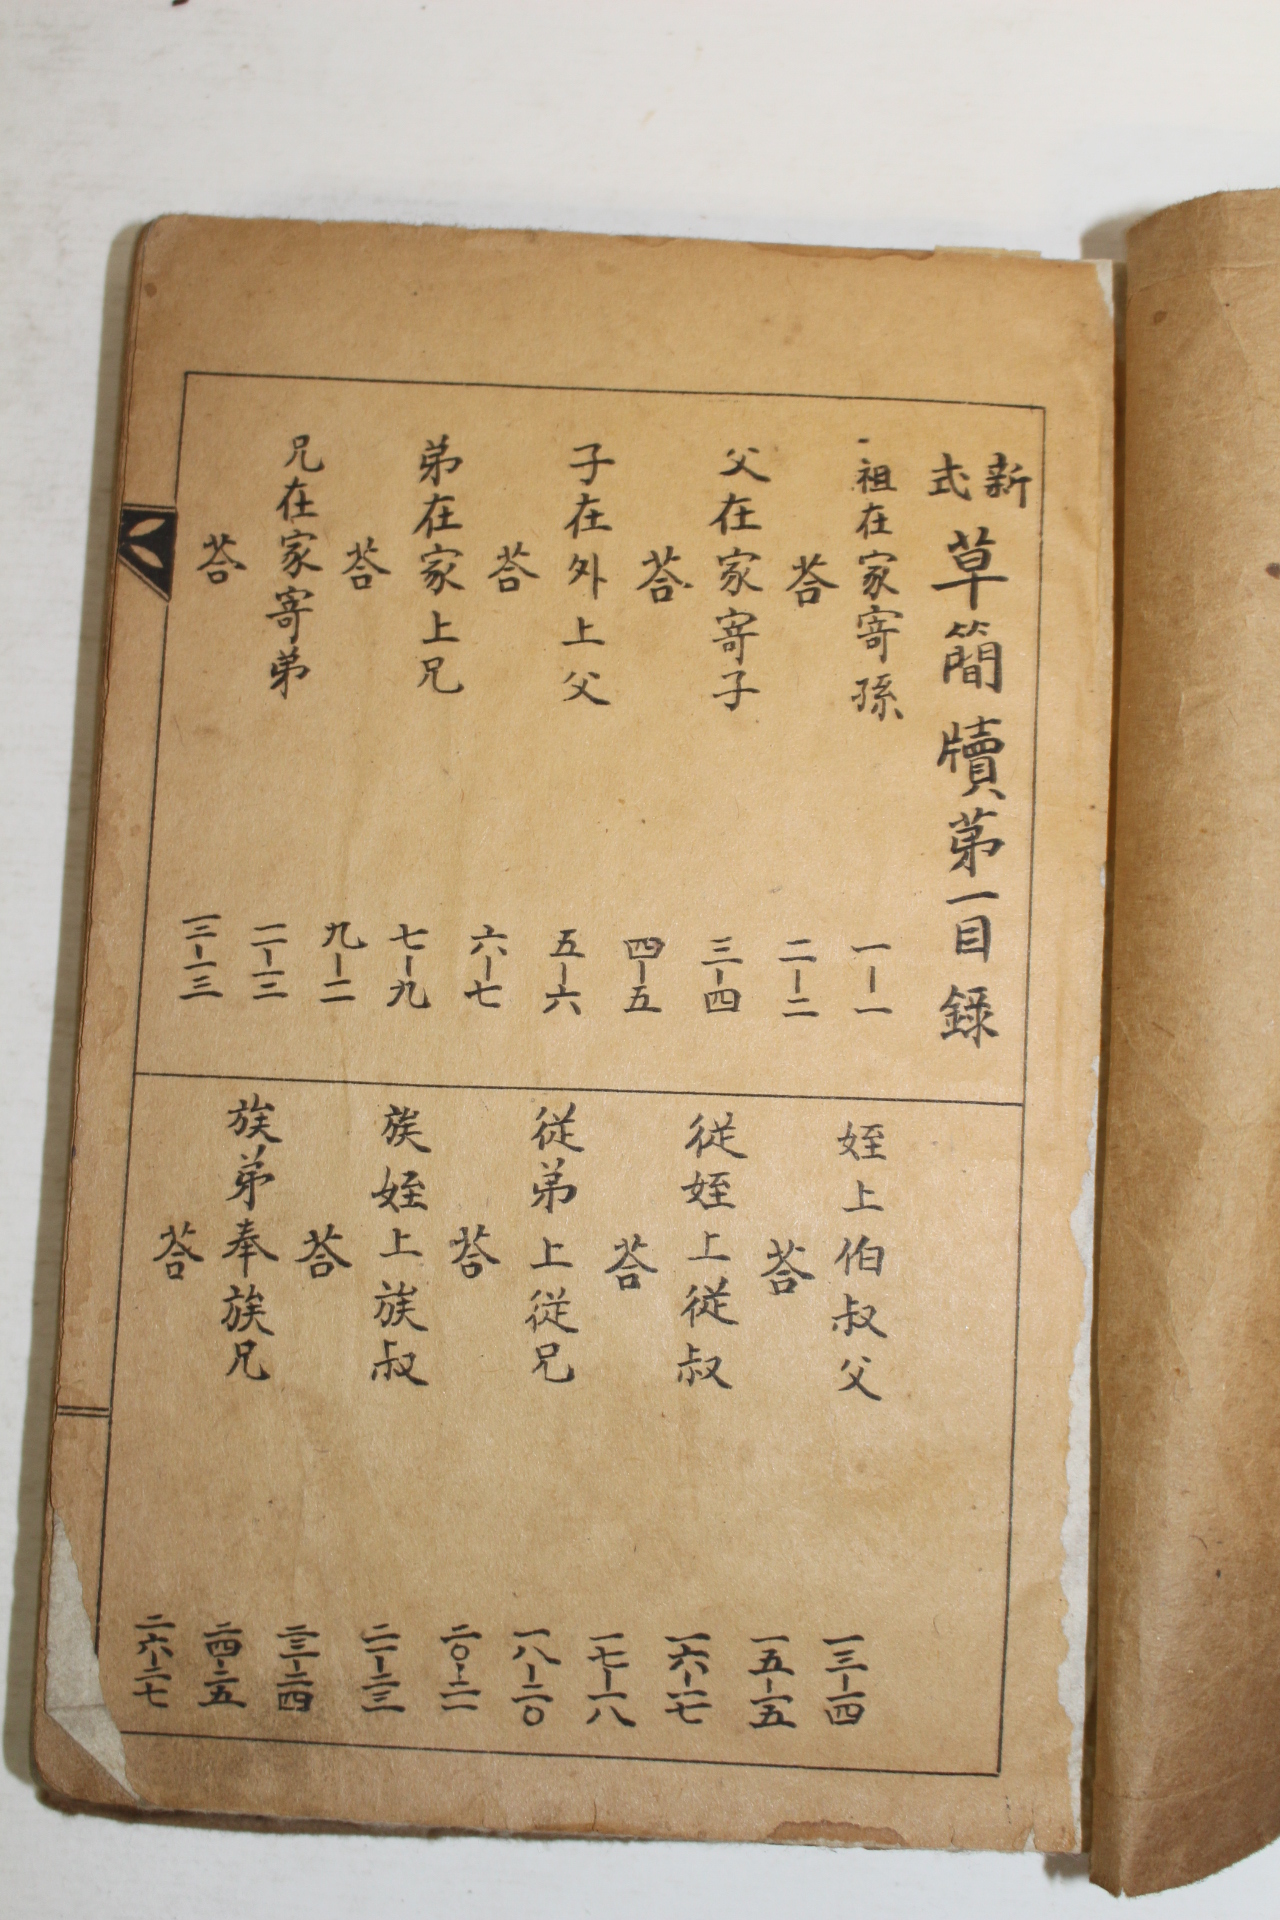 新式草簡牘苐一目錄
祖在家寄孫 一-一
荅 二-二
父在家寄子 三-四
荅 四-五
子在外上父 五-六
荅 六-七
弟在家上兄 七-九
荅 九-一一
兄在家寄弟 一一-一二
荅 一二-一三
姪上伯叔父 一三-一四
荅 一五-一五
従姪上従叔 一六-一七
荅 一七-一八
従弟上従兄 一八-二〇
荅 二〇-二一
族姪上族叔 二一-二三
荅 二三-二四
族弟奉族兄 二四-二五
荅 二六-二七